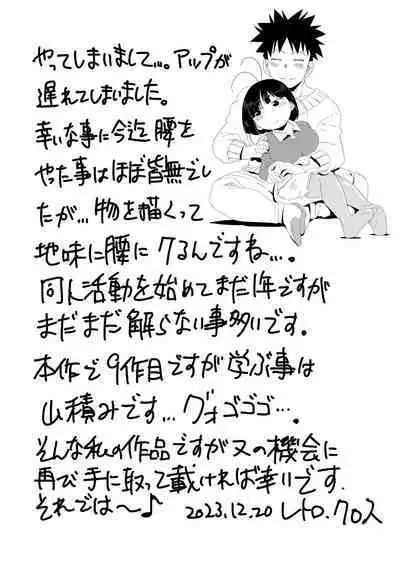 やってしまいまして…。アップが
遅れてしまいました。
幸いな事に今迄腰を
やった事はほぼ皆無でし
たが…物を描くって
地味に腰にクるんですね…。
同人活動を始めてまだ1年ですが
まだまだ解らない事多いです。
本作で9作目ですが学ぶ事は
山積みです…グォゴゴゴ…。
そんな私の作品ですが又の機会に
再び手に取って戴ければ幸いです.
それでは〜♪ 2023.12.20 レトロ.クロス